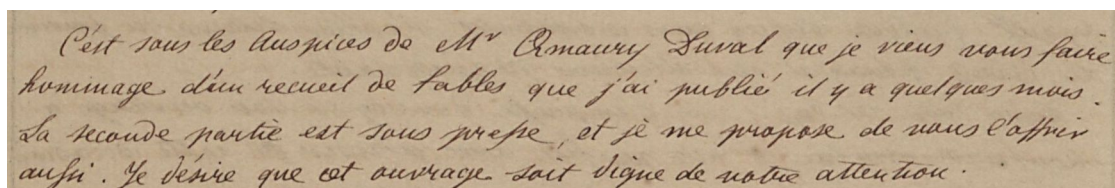 C'est sous les Auspices de Mr Amaury Duval que je viens vous faire
hommage d'un recueil de fables que j'ai publié il y a quelques mois.
La seconde partie est sous presse, et je me propose de vous l'offrir
aussi. Je désire que cet ouvrage soit digne de votre attention.